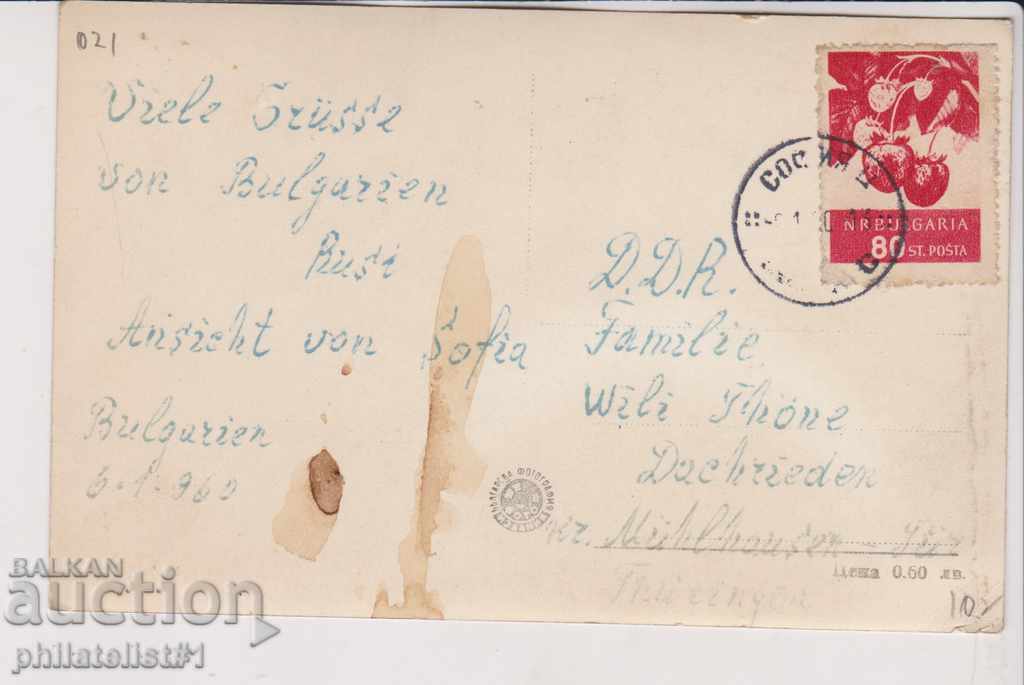 021
Viele Grüsse
von Bulgarien
Rusi
Ansicht von Sofia
Bulgarien
6.1.960
СОФИЯ
NRBULGARIA
80 ST. POŠTA
D.D.R.
Familie
Wili Thöne
Dachrieden
kr. Mühlhausen - Tür
Thüringen
БЪЛГАРСКА ФОТОГРАФИЯ
Цена 0.60 лв.
102
BALKAN
auction
philatelist#1